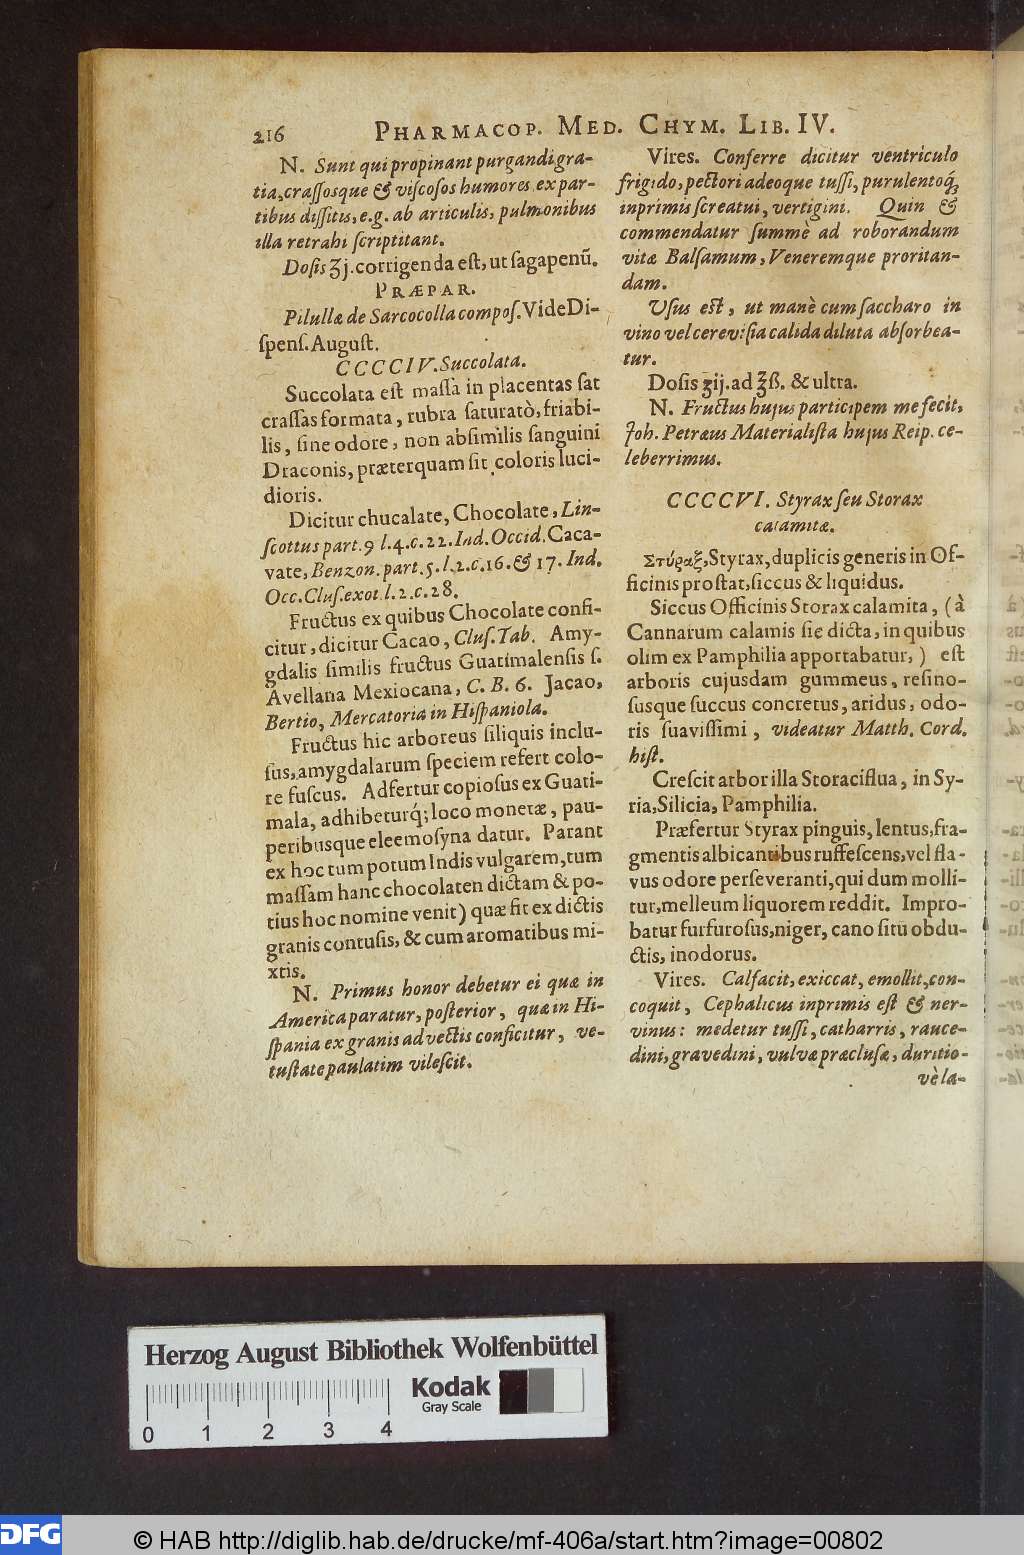 216 PHARMACOP. MED. CHYM. LIB. IV.
N. Sunt qui propinant purgandi gra-
tia, crassosque & viscosos humores ex par-
tibus dissitis, e.g. ab articulis, pulmonibus
illa retrahi scriptitant.
Dosis ʒj. corrigenda est, ut sagapenũ.
PRÆPAR.
Pilullæ de Sarcocolla compos. Vide Di-
spens. August.
CCCCIV. Succolata.
Succolata est massa in placentas sat
crassas formata, rubra saturatò, friabi-
lis, sine odore, non absimilis sanguini
Draconis, præterquam sit coloris luci-
dioris.
Dicitur chucalate, Chocolate, Lin-
scottus part. 9 l. 4. c. 22. Ind. Occid. Caca-
vate, Benzon. part. 5. l. 2. c. 16. & 17. Ind.
Occ. Clus. exot. l. 2. c. 28.
Fructus ex quibus Chocolate confi-
citur, dicitur Cacao, Clus. Tab. Amy-
gdalis similis fructus Guatimalensis s.
Avellana Mexiocana, C. B. 6. Jacao,
Bertio, Mercatoria in Hispaniola.
Fructus hic arboreus siliquis inclu-
sus, amygdalarum speciem refert colo-
re fuscus. Adfertur copiosus ex Guati-
mala, adhibeturq́; loco monetæ, pau-
peribusque eleemosyna datur. Parant
ex hoc tum potum Indis vulgarem, tum
massam hanc chocolaten dictam & po-
tius hoc nomine venit) quæ fit ex dictis
granis contusis, & cum aromatibus mi-
xtis.
N. Primus honor debetur ei quæ in
America paratur, posterior, quæ in Hi-
spania ex granis advectis conficitur, ve-
tustate paulatim vilescit.
Vires. Conferre dicitur ventriculo
frigido, pectori adeoque tussi, purulentoq́;
inprimis screatui, vertigini. Quin &
commendatur summè ad roborandum
vitæ Balsamum, Veneremque proritan-
dam.
Usus est, ut manè cum saccharo in
vino vel cerevisia calida diluta absorbea-
tur.
Dosis ʒij. ad ℥ß. & ultra.
N. Fructus hujus participem me fecit,
Joh. Petræus Materialista hujus Reip. ce-
leberrimus.
CCCCVI. Styrax seu Storax
calamitæ.
Στύραξ, Styrax, duplicis generis in Of-
ficinis prostat, siccus & liquidus.
Siccus Officinis Storax calamita, (à
Cannarum calamis sie dicta, in quibus
olim ex Pamphilia apportabatur,) est
arboris cujusdam gummeus, resino-
susque succus concretus, aridus, odo-
ris suavissimi, videatur Matth. Cord.
hist.
Crescit arbor illa Storaciflua, in Sy-
ria, Silicia, Pamphilia.
Præfertur Styrax pinguis, lentus, fra-
gmentis albicantibus ruffescens, vel fla-
vus odore perseveranti, qui dum molli-
tur, melleum liquorem reddit. Impro-
batur furfurosus, niger, cano situ obdu-
ctis, inodorus.
Vires. Calfacit, exiccat, emollit, con-
coquit, Cephalicus inprimis est & ner-
vinus: medetur tussi, catharris, rauce-
dini, gravedini, vulvæ præclusæ, duritio-
vè la-
Herzog August Bibliothek Wolfenbüttel
Kodak
Gray Scale
0 1 2 3 4
DFG
© HAB http://diglib.hab.de/drucke/mf-406a/start.htm?image=00802